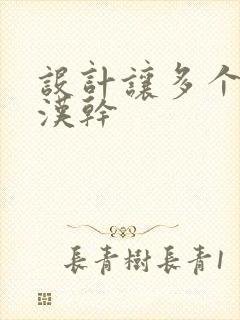 設計讓多个
漢幹
長青樹長青1